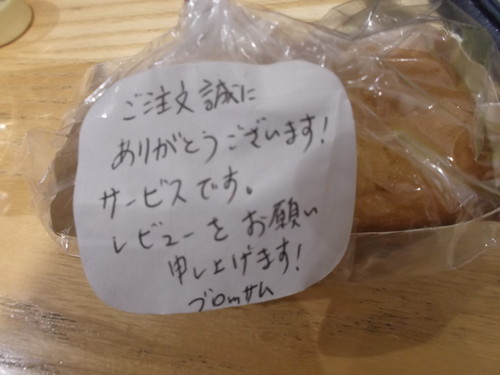 ご注文誠に
ありがとうございます!
サービスです。
レビューをお願い
申し上げます!